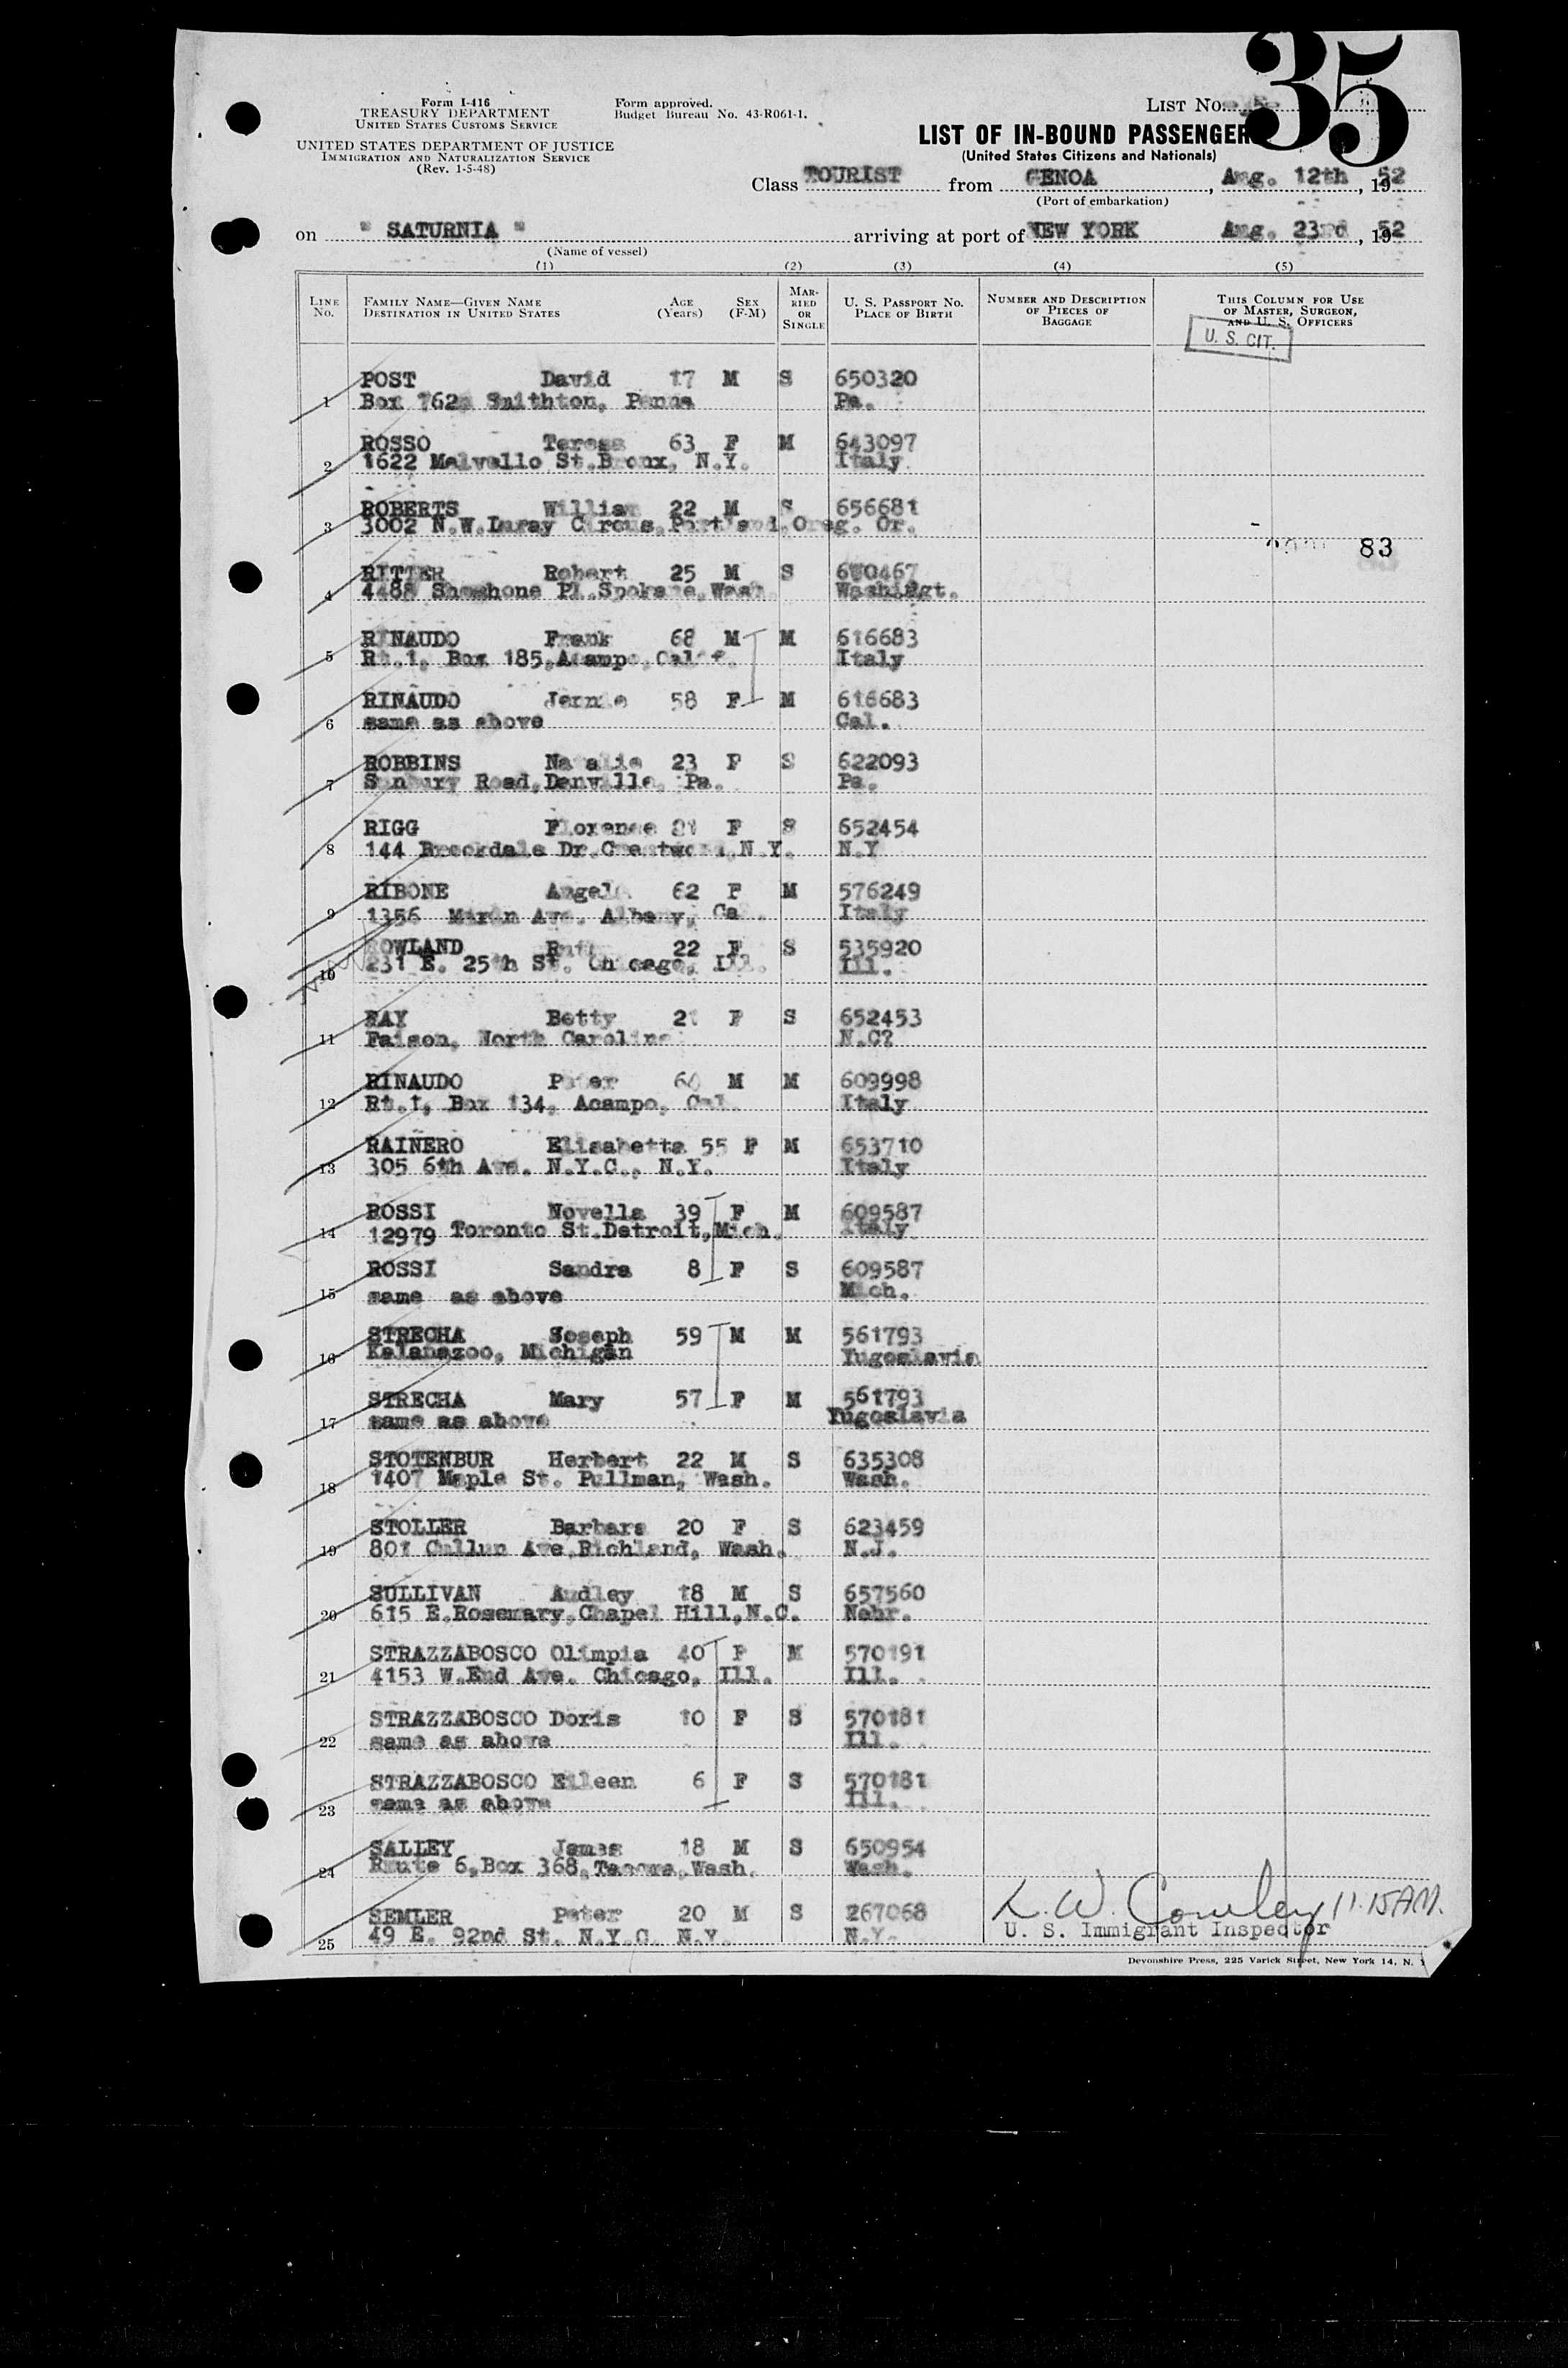 35
Form I-416
TREASURY DEPARTMENT
UNITED STATES CUSTOMS SERVICE
UNITED STATES DEPARTMENT OF JUSTICE
IMMIGRATION AND NATURALIZATION SERVICE
(Rev. 1-5-48)
Form approved.
Budget Bureau No. 43-R061-1.
LIST NO.
LIST OF IN-BOUND PASSENGER
(United States Citizens and Nationals)
Class TOURIST from GENOA, Aug. 12th, 1952
(Port of embarkation)
on " SATURNIA " arriving at port of NEW YORK Aug. 23rd, 1952
(Name of vessel)
(1) (2) (3) (4) (5)
LINE NO. FAMILY NAME—GIVEN NAME DESTINATION IN UNITED STATES AGE (Years) SEX (F-M) MARRIED OR SINGLE U. S. PASSPORT NO. PLACE OF BIRTH NUMBER AND DESCRIPTION OF PIECES OF BAGGAGE THIS COLUMN FOR USE OF MASTER, SURGEON, AND U. S. OFFICERS
U. S. CIT.
POST David 17 M S 650320
1 Box Smithton, Penna Pa.
ROSSO Teresa 63 F M 643097
2 1622 St.Bronx, N.Y. Italy
ROBERTS William 22 M S 656681
3 3002 N.W.Luray Circus,Portland,Oreg. Or.
83
RITTER Robert 25 M S
4 4488 Shoshone Pl.Spokane,Wash. Washingt.
RINAUDO Frank 68 M M 616683
5 Rt.1, Box 185,Acampo,Calif. Italy
RINAUDO Jennie 58 F M 616683
6 same as above Cal.
ROBBINS Natalie 23 F S 622093
7 Sunbury Road,Danville, Pa. Pa.
RIGG Florence 21 F S 652454
8 144 Brookdale Dr.Crestwood,N.Y. N.Y
RIBONE Angela 62 F M 576249
9 1356 Marin Ave. Albany, Ca. Italy
ROWLAND Ruth 22 F S 535920
10 231 E. 25th St. Chicago, Ill. Ill.
RAY Betty 21 F S 652453
11 Faison, North Carolina N.C?
RINAUDO Peter M M 609998
12 Rt.1, Box 134, Acampo, Cal. Italy
RAINERO Elisabetta 55 F M 653710
13 305 6th Ave. N.Y.C., N.Y. Italy
ROSSI Novella 39 F M 609587
14 12979 Toronto St.Detroit,Mich. Italy
ROSSI Sandra 8 F S 609587
15 same as above Mich.
STRECHA Joseph 59 M M 561793
16 Kalamazoo, Michigan Yugoslavia
STRECHA Mary 57 F M 561793
17 same as above Yugoslavia
STOTENBUR Herbert 22 M S 635308
18 1407 Maple St. Pullman, Wash. Wash.
STOLLER Barbara 20 F S 623459
19 801 Cullum Ave,Richland, Wash. N.J.
SULLIVAN Audley 18 M S 657560
20 615 E.Rosemary,Chapel Hill,N.C. Nebr.
STRAZZABOSCO Olimpia 40 F M 570191
21 4153 W.End Ave. Chicago, Ill. Ill.
STRAZZABOSCO Doris 10 F S 570181
22 same as above Ill.
STRAZZABOSCO Eileen 6 F S 570181
23 same as above Ill.
SALLEY James 18 M S 650954
24 Route 6,Box 368,Tacoma,Wash. Wash.
SEMLER Peter 20 M S 267068
25 49 E. 92nd St. N.Y.C. N.Y. N.Y.
11:15 AM.
U. S. Immigrant Inspector
Devonshire Press, 225 Varick Street, New York 14, N.